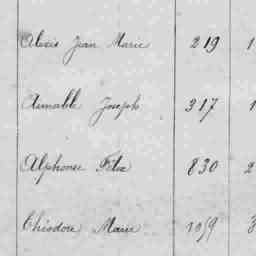 Alexis Jean Marie 219 1
Aimable Joseph 317 1
Alphonse Félix 830 2
Théodore Marie 1059 3